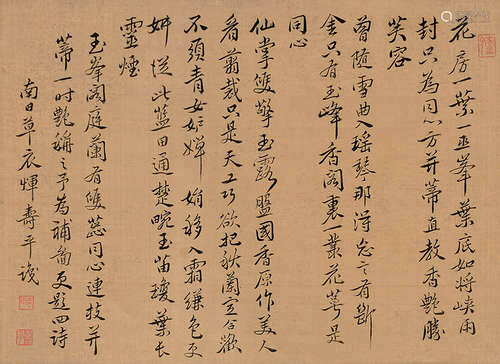 花房一葉一巫峯葉底如將峽雨
封只為同心方并蒂直教香艷勝
芙容
曾隨雪曲入瑤琴那得忘言有斷
金只有玉峰香閣裏一叢花萼是
同心
仙掌雙擎玉露盤國香原作美人
看翦裁只是天工巧欲把秋蘭宜合歡
不須青女妬嬋娟移入霜縑色更
妍從此藍田通楚畹玉苗瓊葉長
靈煙
玉峯閣庭蘭有雙蕊同心連枝并
蒂一时艷稱之予為補圖更題四詩
南田草衣惲壽平識